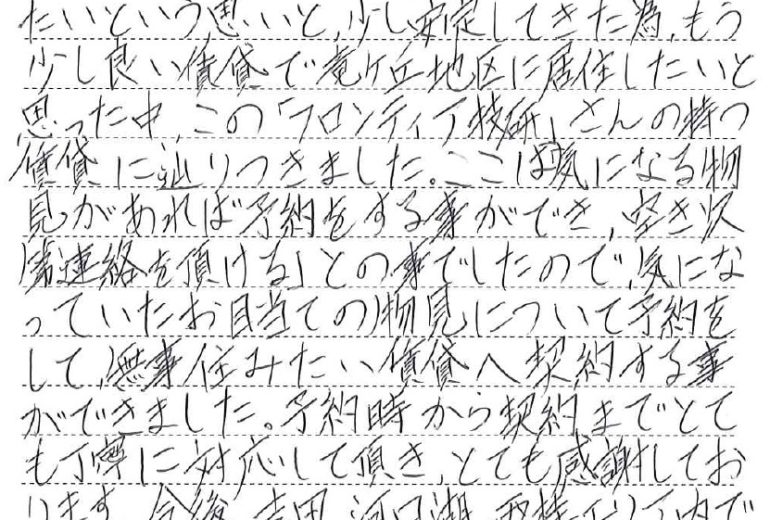 たいという思いと、少し安定してきた為、もう
少し良い賃貸で竜ケ丘地区に居住したいと
思った中、この「フロンティア技研」さんの持つ
賃貸に辿りつきました。ここは気になる物
見があれば予約をする事ができ、空き次
第連絡を頂ける」との事でしたので、気にな
っていたお目当ての物見について予約を
して、無事住みたい賃貸へ契約する事
ができました。予約時から契約までとて
も丁寧に対応して頂き、とても感謝してお
ります。今後、吉田、河口湖、エリア内で